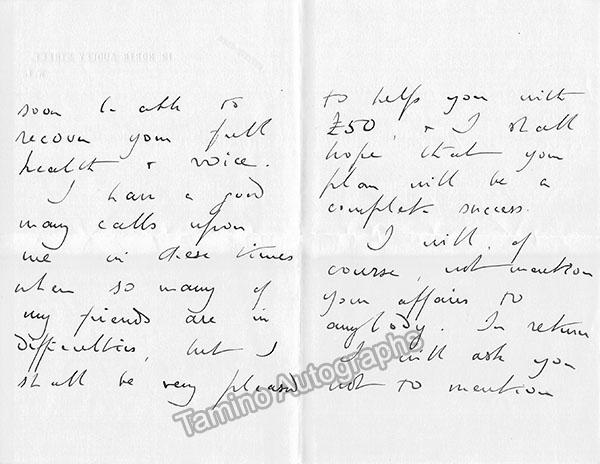 soon be able to
recover your full
health & voice.
I have a good
many calls upon
me in these times
when so many of
my friends are in
difficulties, but I
shall be very pleased
to help you with
£50, & I shall
hope that your
plan will be a
complete success.
I will, of
course, not mention
your affairs to
anybody. In return
I will ask you
not to mention
Tamino Autographs